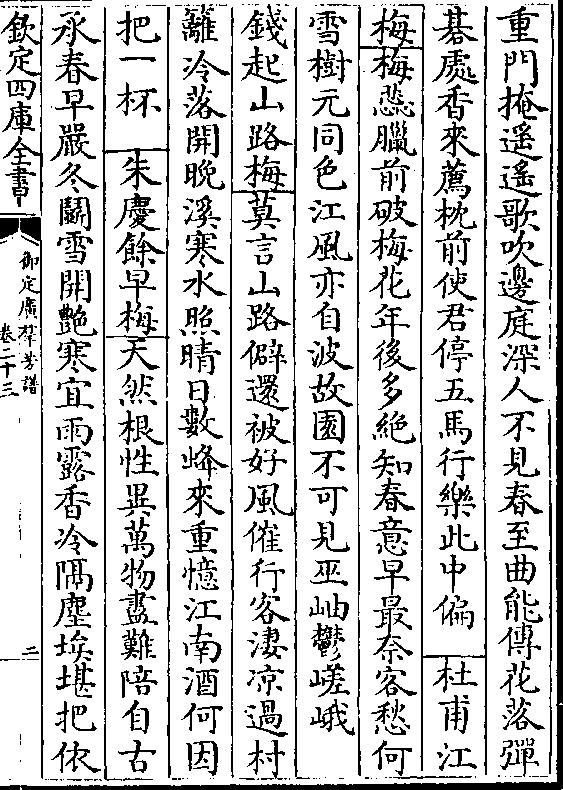 重門掩遥遥歌吹邊庭深人不見春至曲能傳花落彈
棊處香來薦枕前使君停五馬行樂此中偏　杜甫江
梅梅蕊臘前破梅花年後多絶知春意早最奈客愁何
雪樹元同色江風亦自波故園不可見巫岫鬱嵯峨
錢起山路梅莫言山路僻還被好風催行客凄凉過村
籬冷落開晚溪寒水照晴日數峰來重憶江南酒何因
把一杯　朱慶餘早梅天然根性異萬物盡難陪自古
承春早嚴冬鬭雪開艷寒宜雨露香冷隔塵埃堪把依
欽定四庫全書
御定廣羣芳譜
卷二十三
二